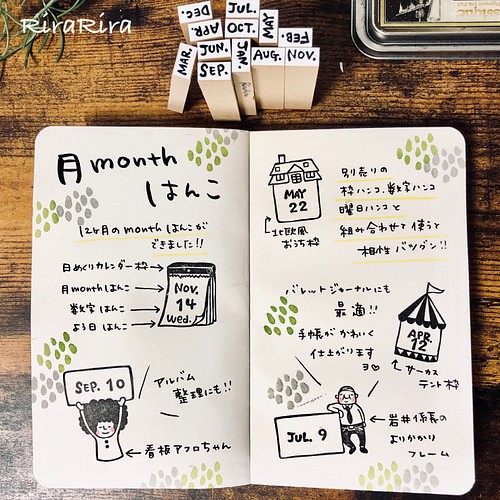 RiraRira
DEC.
JUL.
MAY
APR.
OCT.
FEB.
MAR.
JUN.
JAN.
AUG.
NOV.
SEP.
月month
はんこ
12ヶ月のmonthはんこが
できました!!
日めくりカレンダー枠→
月monthはんこ→
数字はんこ→
よう日はんこ→
Nov.
14
Wed.
SEP. 10
アルバム
整理にも!!
←看板アフロちゃん
MAY
22
↑北欧風
おうち枠
別売りの
枠ハンコ、数字ハンコ
曜日ハンコと
組み合わせて使うと
相性バツグン!!
バレットジャーナルにも
最適!!
手帳がかわいく
仕上がります
ヨ♡
APR.
12
↖サーカス
テント枠
JUL. 9
←岩井係長の
よりかかり
フレーム